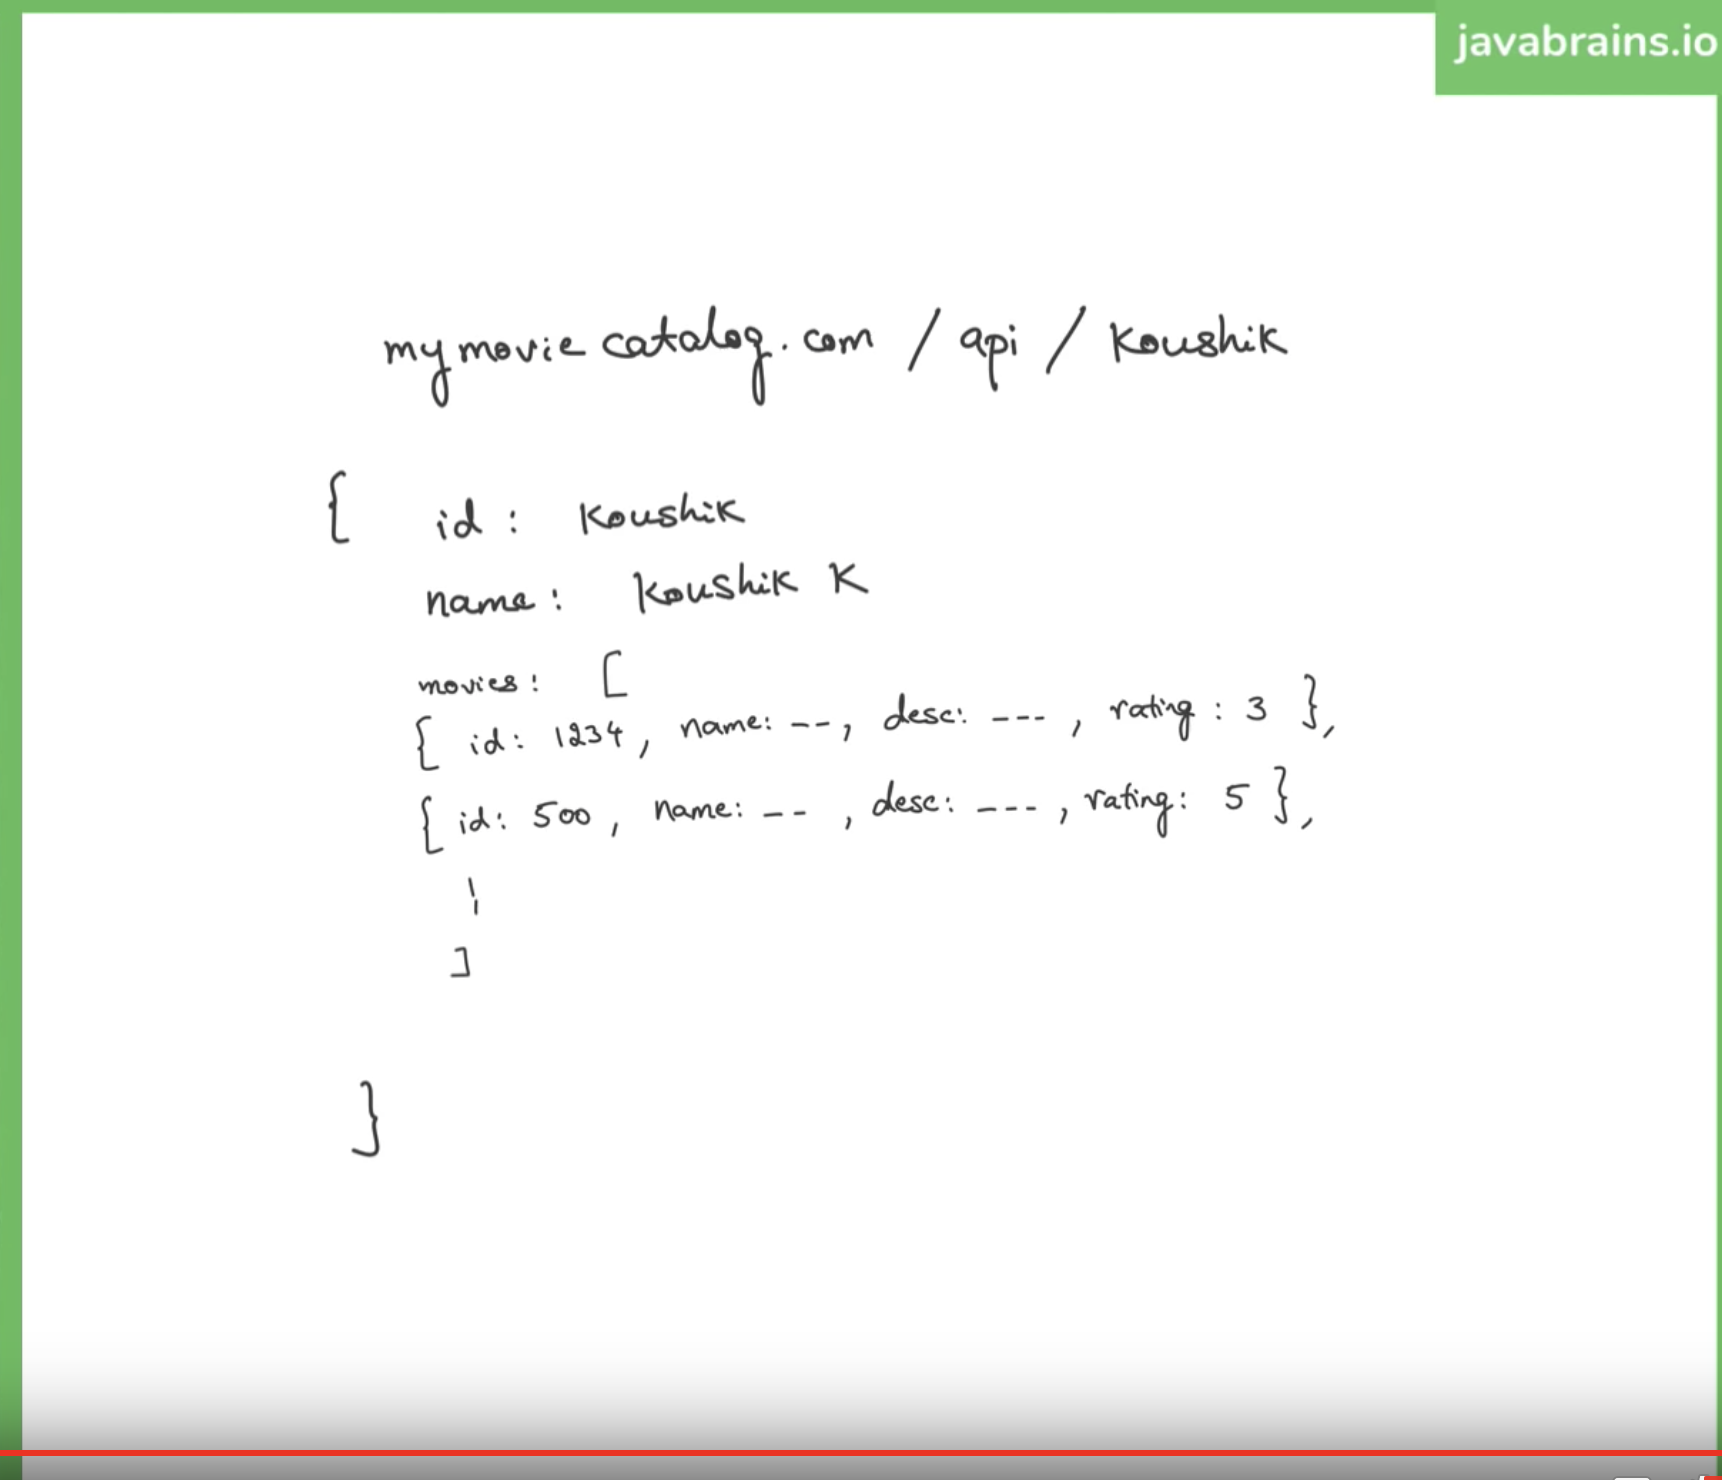 javabrains.io
mymoviecatalog.com / api / Koushik
{ id : Koushik
name : Koushik K
movies : [
{ id : 1234 , name: -- , desc: --- , rating : 3 },
{ id: 500 , name: -- , desc: --- , rating: 5 },
]
}